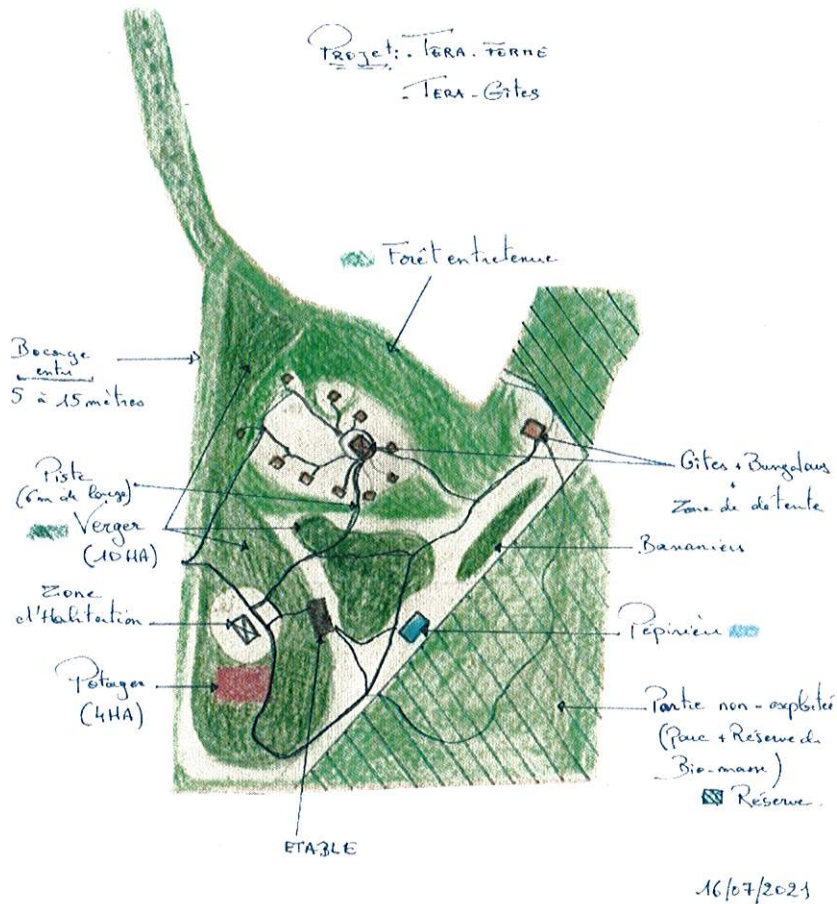 Projet: . TERA. FERME
. TERA-Gîtes
Forêt entretenue
Bocage
entre
5 à 15 mètres
Piste
(6m de large)
Verger
(10HA)
Zone
d'Habitation
Potager
(4HA)
Gîtes + Bungalows
+
Zone de détente
Bananiers
Pépinière
Partie non-exploité
(Parc + Réserve de
Bio-masse)
Réserve
ETABLE
16/07/2021